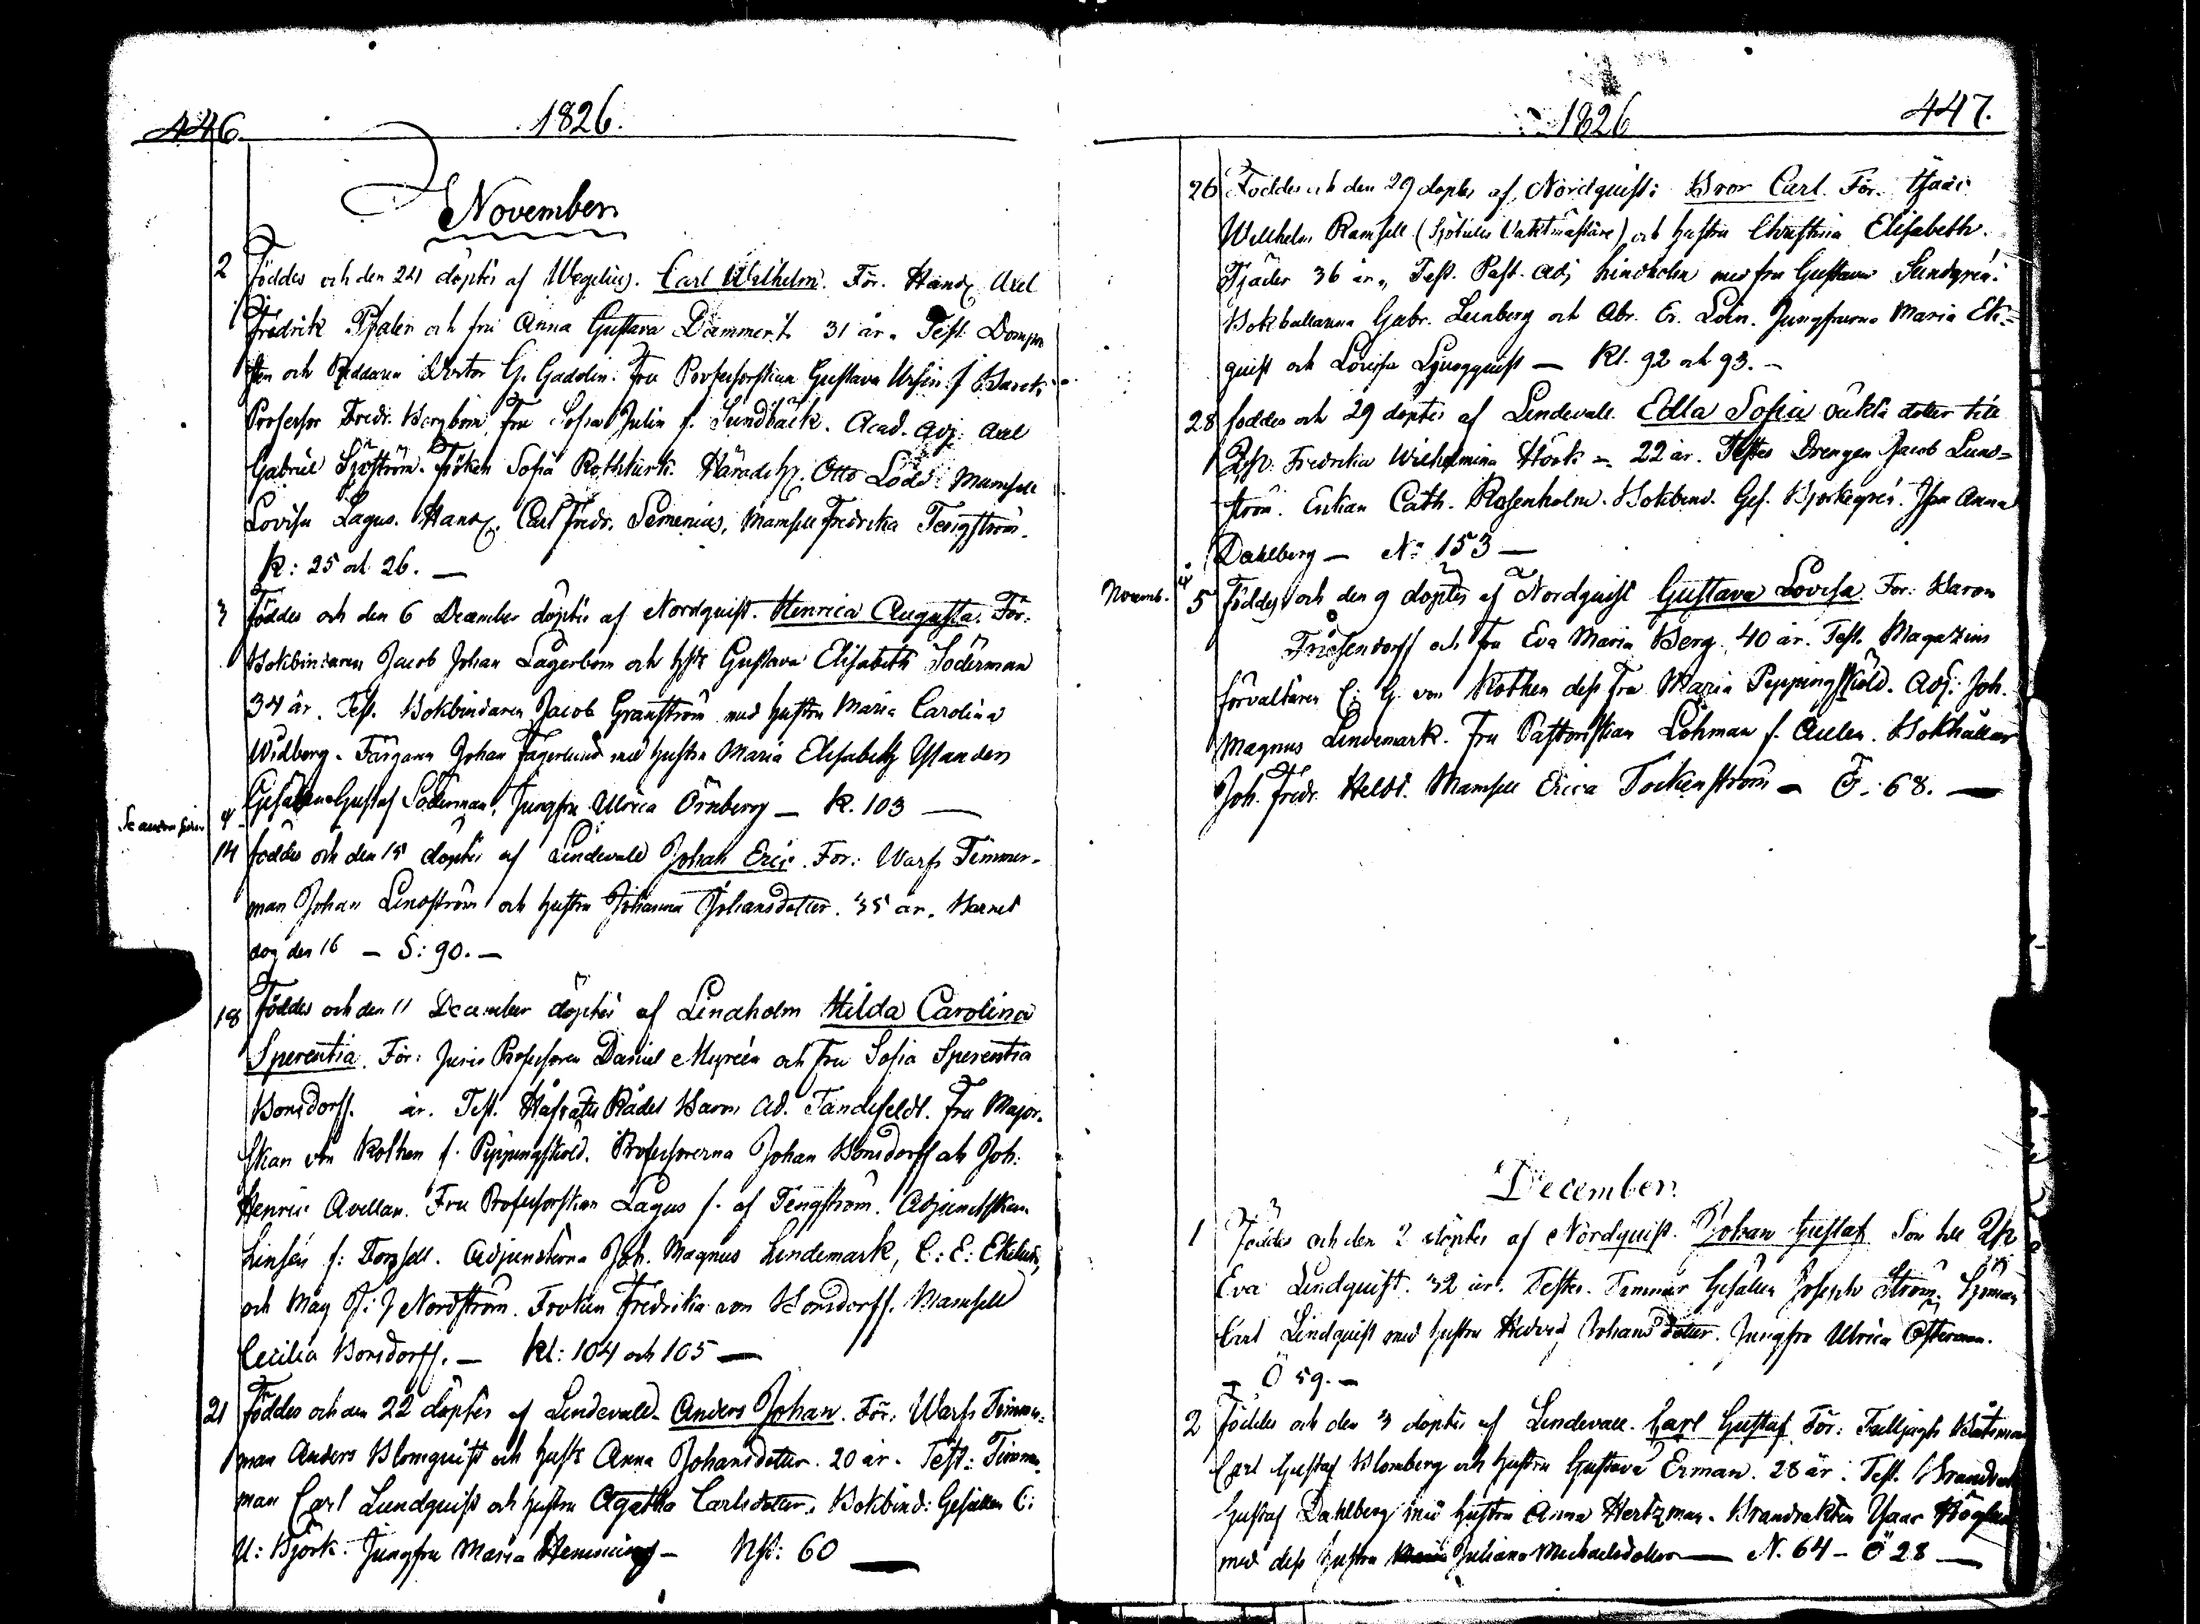 446.
1826.
November
2 Föddes och den 24 döptes af Wegelius. Carl Wilhelm. För. Handl. Axel
Fredrik Thalen och fru Anna Gustava Dammert 31 år. Test. Domprosten
och Riddaren Doctor G. Gadolin. Fru Professorskan Gustava Ursin f.
Professor Fredr. Bergbom, Fru Sofia Julin f. Sundbäck. Acad. Adj. Axel
Gabriel Sjöström. Fröken Sofia Rothkirk. Häradsh. Otto Löde. Mamsell
Lovisa Lagus. Handl. Carl Fredr. Semenius, Mamsell Fredrika Tengström.
K: 25 och 26. —
3 Föddes och den 6 December döptes af Nordquist. Henrica Augusta. För.
Bokbindaren Jacob Johan Lagerbom och hst. Gustava Elisabeth Söderman
34 år. Test. Bokbindaren Jacob Granström med hustru Maria Carolina
Widberg. Färgaren Johan Fagerlund med hustru Maria Elisabeth Ytander
Gesällen Gustaf Söderman, Jungfru Ulrica Örnberg — K. 103 —
14 föddes och den 15 döptes af Lindevall Johan Eric. För: Warfs Timmer-
man Johan Lindström och hustru Johanna Johansdotter. 35 år. Barnet
dog den 16 — S: 90. —
18 Föddes och den 11 December döptes af Lindholm Hilda Carolina
Sperentia. För: Juris Professoren Daniel Myreen och Fru Sofia Sperentia
Bonsdorff. år. Test. Håfrätts Rådet Baron Ad. Tandefeldt. Fru Major-
skan von Kothen f. Pippingsköld. Professorerna Johan Bonsdorff och Joh:
Henric Avellan. Fru Professorskan Lagus f. af Tengström. Adjunctskan
Linsén f: Forssell. Adjuncterna Joh. Magnus Lindemark, C: E: Ekelund,
och Mag J: J Nordström. Froken Fredrika von Bonsdorff. Mamsell
Cecilia Bonsdorff. — Kl: 104 och 105 —
21 Föddes och den 22 döptes af Lindevall. Anders Johan. För: Warfs Timmer-
man Anders Blomquist och hust. Anna Johansdotter. 20 år. Test: Timmer-
man Carl Lundquist och hustru Agatha Carlsdotter. Bokbind: Gesällen C:
U: Björk. Jungfru Maria Henning — Nst: 60 —
1826
447.
26 Föddes och den 29 döptes af Nordquist: Bror Carl. För. Isaac
Willhelm Ramsell (Sjötulls Vaktmästare) och hustru Christina Elisabeth
Tjäder 36 år. Test. Past. Adj Lindholm med fru Gustava Sundgren.
Bokhållarna Gabr. Leinberg och Abr. Er. Loin. Jungfruerna Maria Ek-
quist och Lovisa Ljungquist — Kl. 92 och 93. —
28 föddes och 29 döptes af Lindevall. Edla Sofia oäkta dotter till
Qsp. Fredrika Wilhelmina Höök — 22 år. Testes Drengen Jacob Lund-
ström. Enkan Cath. Rosenholm. Bokbind. Ges. Bjorkegren. Jfru Anna
Dahlberg — No 153 —
Novemb. 5 Föddes och den 9 döptes af Nordquist Gustava Lovisa. For: Baron
Friesendorff och fru Eva Maria Berg. 40 år. Test. Magazins
förvaltaren C: G. von Kothen dess Fru Maria Pippingsköld. Adj. Joh.
Magnus Lindemark. Fru Pastorskan Lohman f. Aulen. Bokhållar
Joh. Fredr. Heldt. Mamsell Erica Tockenström — 68. —
December
1 Föddes och den 2 döptes af Nordquist. Johan Gustaf Son till Qsp
Eva Lindquist. 32 år. Testes. Timmer Gesällen Joseph Ström. Sjöman
Carl Lindquist med hustru Hedvig Johansdotter. Jungfru Ulrica Österman.
— Ö 59. —
2 Föddes och den 3 döptes af Lindevall. Carl Gustaf. För: Tulljagts Båtsman
Carl Gustaf Blomberg och hustru Gustava Erman. 28 år. Test. Brandvak
Gustaf Dahlberg med hustru Anna Hertzman. Brandvakten Isaac Höglund
med dess hustru Juliana Michaelsdotter — N. 64 — Ö 28 —